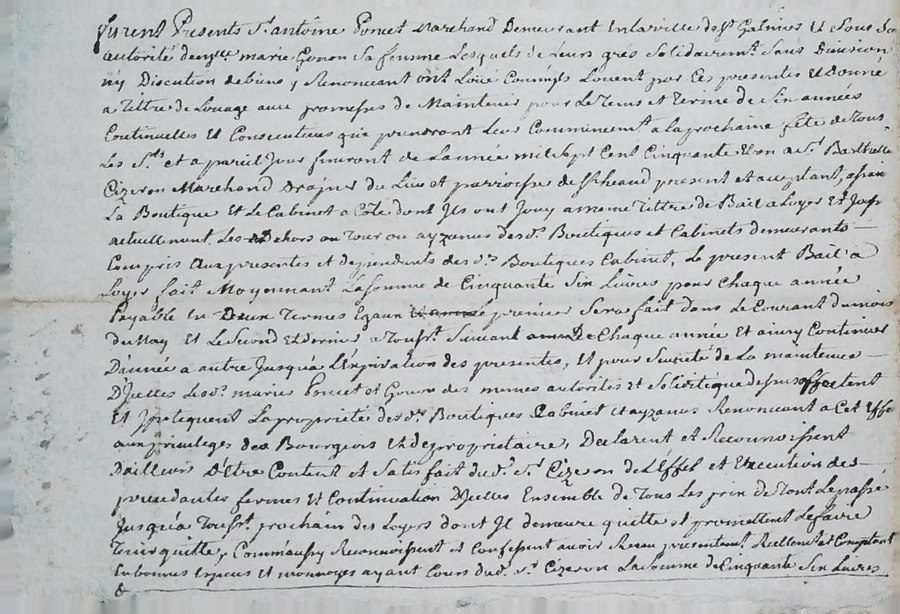 furent Presents Sr. antoine Poncet Marchand Demeurant en la ville de st Galmier Et Sous Son
autorité demlle. marie Gonon Sa femme Lesquels de Leurs grés Solidairemt. Sans Division
ny Discution de biens y Renonçant ont Loüé Comme Loüent par Ces presentes Et Donné
a Tittre de Loüage avec promesses de Maintenir pour Le Tems et terme de Six années
Continuelles Et Consecutives qui prendront Leur Commencemt. a la prochaine fête de Tous
Les Sts. et a pareil Jour finiront de Lannée mil Sept Cent Cinquante Et un a Sr. Barthelle
Cizeron Marchand Drapier du Lieu et parroisse de st heand present et acceptant,
La Boutique Et Le Cabinet a Côté dont Ils ont Joüy a meme Tittre de Bail a Loyer Et
actuellement, Les dehors au Tour ou ayzances des d. Boutiques et Cabinets demeurants
Compris aux presentes et dependants des ds. Boutiques Cabinet, Le present Bail a
Loyer fait Moyennant La Somme de Cinquante Six Livres pour Chaque année
Payable En Deux Termes Egaux premier Sera fait dans Le Courant du mois
de May Et Le Second Et dernier a Toussts. Suivant de Chaque année Et ainsy Continuer
D'année a autre Jusqu'à L'expiration des presentes, Et pour Sureté de La maintenue
D'Jcelles Les ds. mariés Poncet et Gonon des memes autorités et Solidité que dessus affectent
Et Jpotequent La proprieté des ds. Boutiques Cabinet et ayzances Renonçant a Cet Effe
aux privileges des Bourgeois Et de proprietaire, Declarent et Reconnoissent
Dailleurs D'Etre Content et Satisfait dud. Sr. Cizeron de L'Effet et Execution des
precedantes fermes Et Continuation D'Jcelles Ensemble de Tous Les prix de Tout Le passé
Jusqu'à Toussts. prochain des Loyers dont Jl demeure quitte et promettent Le faire
Tenir quitte, Comm'aussy Reconnoissent et Confessent avoir Receu presentemt. Reellemt. et Comptant
En bonnes Especes Et monnoyes ayant Cours dud. Sr. Cizeron La Somme de Cinquante Six Livres